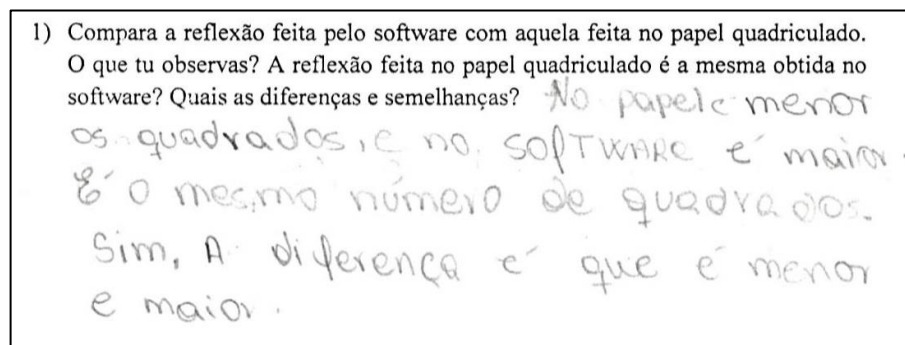 1) Compara a reflexão feita pelo software com aquela feita no papel quadriculado.
O que tu observas? A reflexão feita no papel quadriculado é a mesma obtida no
software? Quais as diferenças e semelhanças? No papel e menor
os quadrados, e no SOFTWARE e' maior
É o mesmo número de quadrados.
Sim, A diferença e' que é menor
e maior.